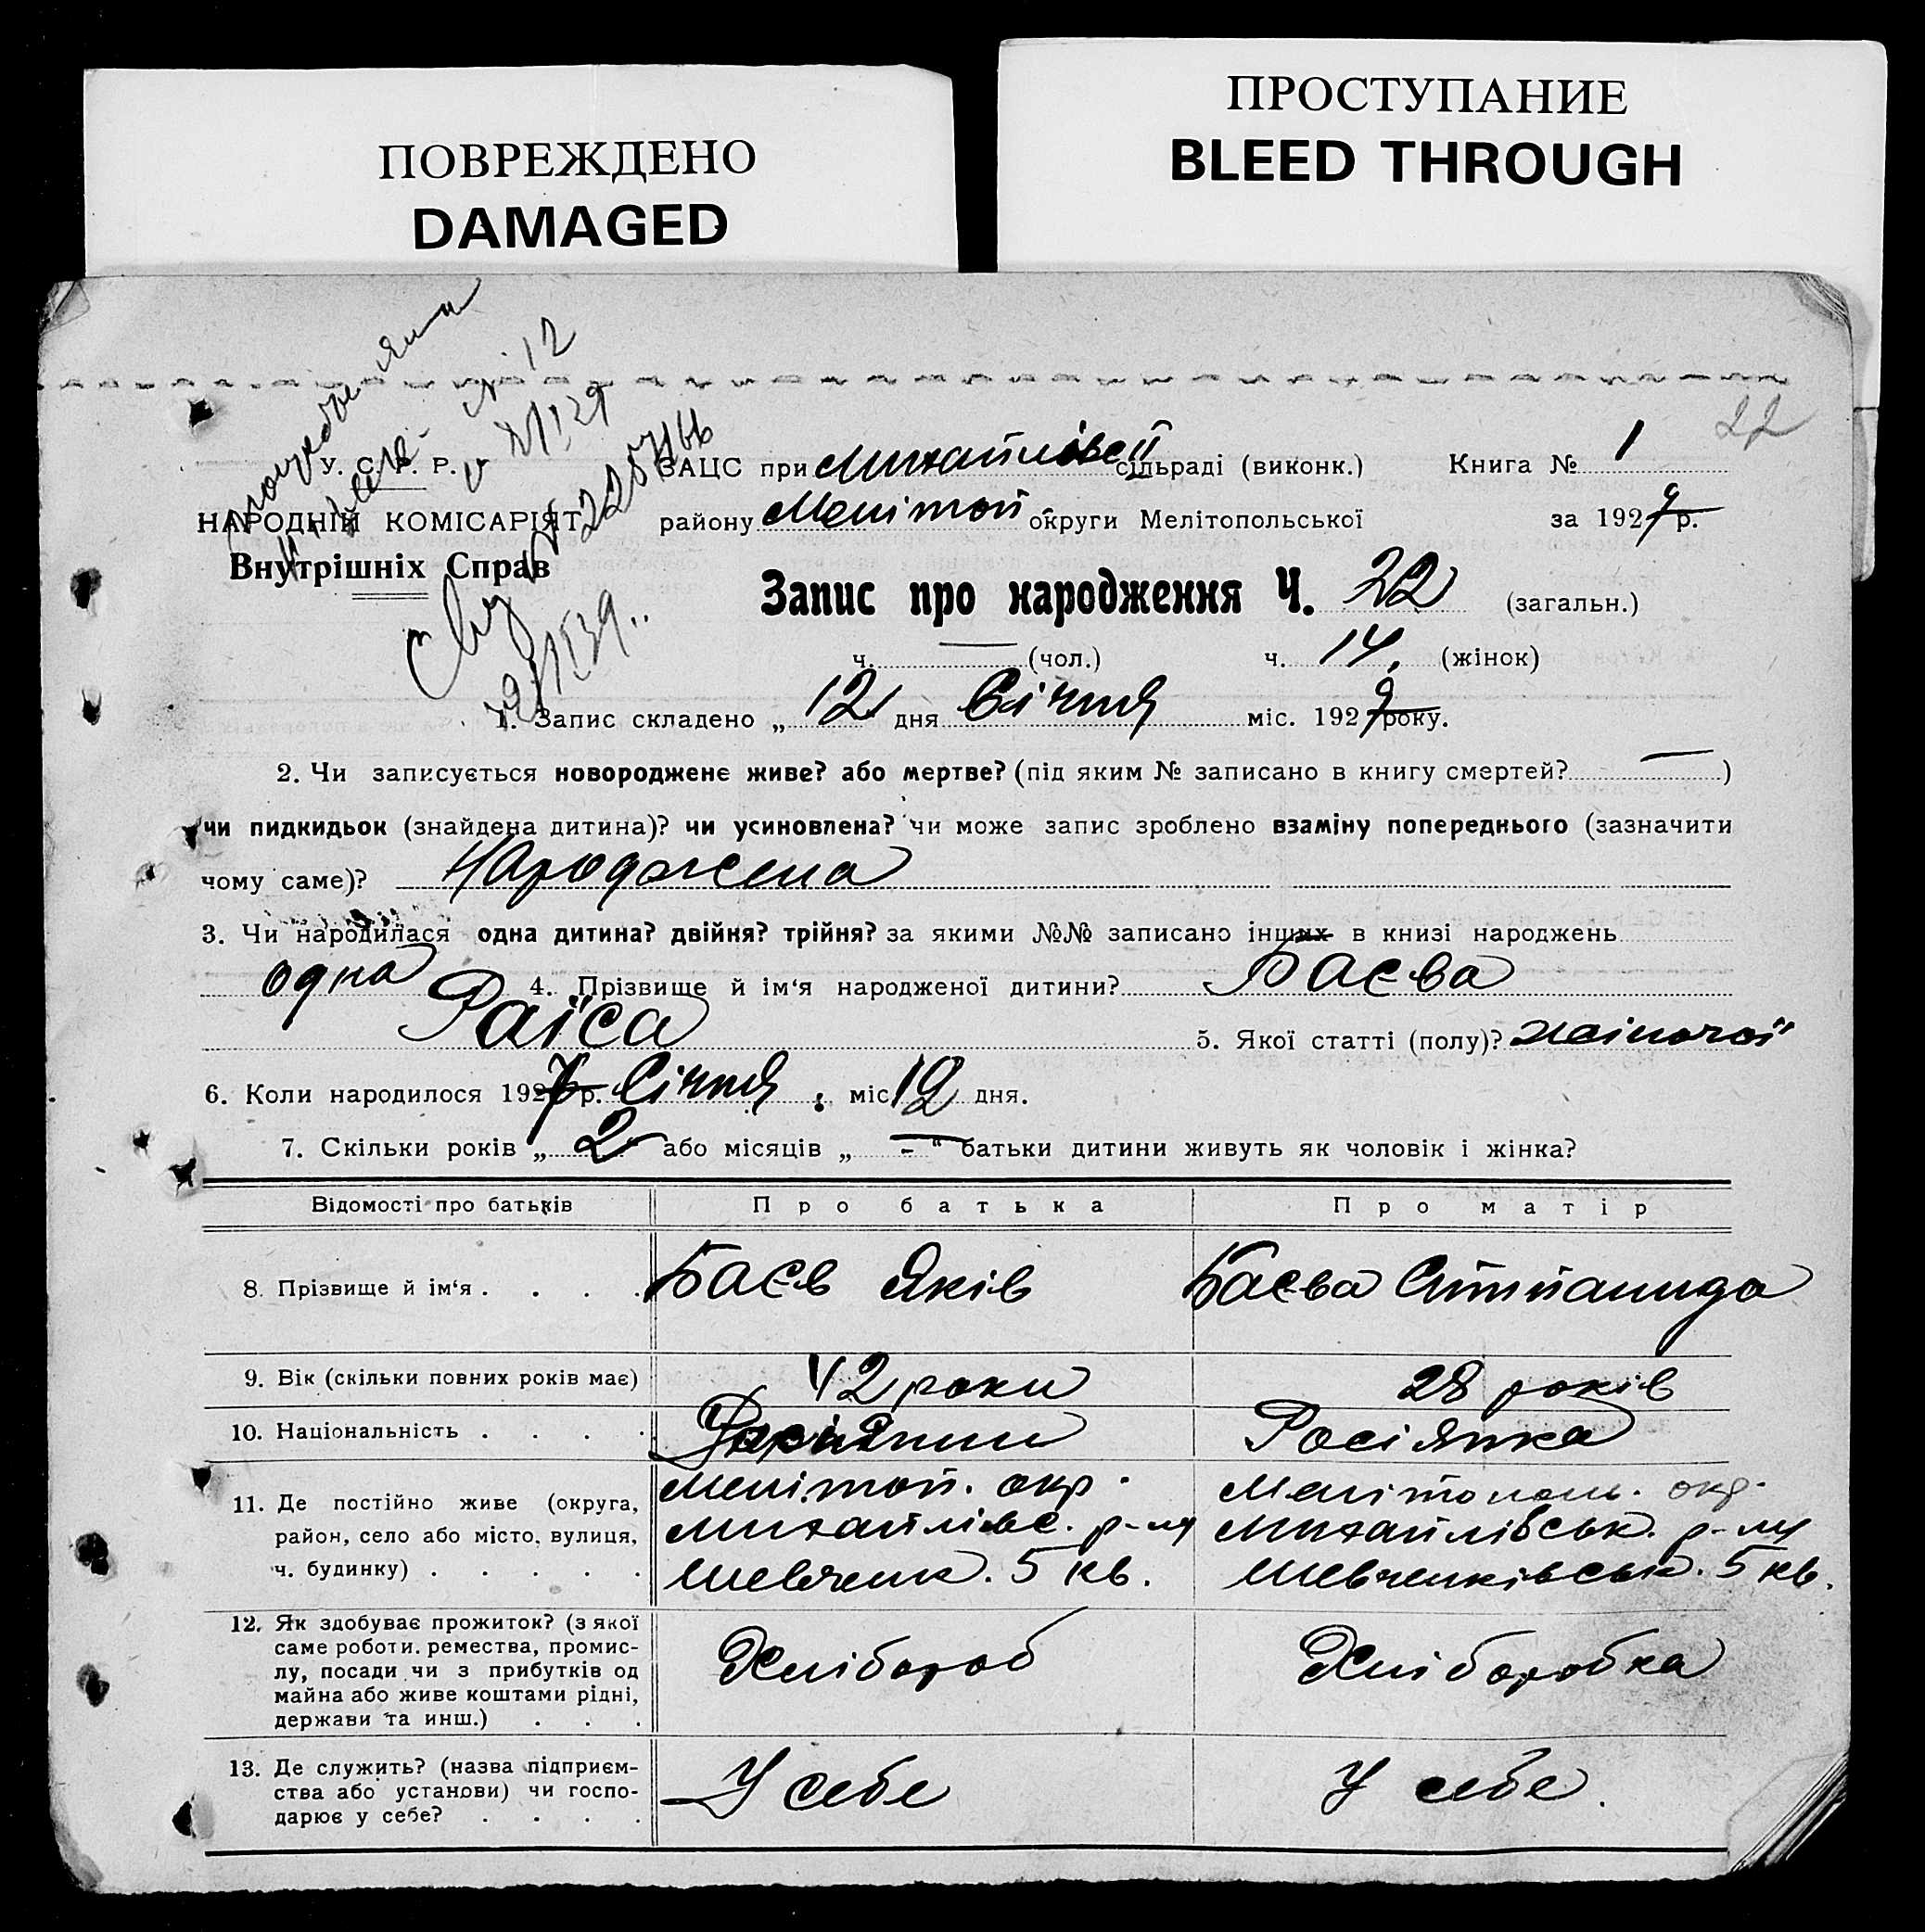 ПОВРЕЖДЕНО
DAMAGED
ПРОСТУПАНИЕ
BLEED THROUGH
№ 12
22
У. С. Р. Р.
НАРОДНІЙ КОМІСАРІЯТ
Внутрішніх Справ
ЗАЦС при Михайлівсй сільраді (виконк.) Книга № 1
району Мелітоп округи Мелітопольської за 1929 р.
Запис про народження Ч. 22 (загальн.)
ч. — (чол.) ч. 14. (жінок)
1. Запис складено „ 12 дня Січня міс. 1929 року.
2. Чи записується новороджене живе? або мертве? (під яким № записано в книгу смертей? — )
чи пидкидьок (знайдена дитина)? чи усиновлена? чи може запис зроблено взаміну попереднього (зазначити
чому саме)? Народжена
3. Чи народилася одна дитина? двійня? трійня? за якими №№ записано інших в книзі народжень
одна 4. Прізвище й ім'я народженої дитини? Баєва
Раїса 5. Якої статті (полу)? жіночої
6. Коли народилося 192 р. Січня міс. 12 дня.
7. Скільки років „ 2 “ або місяців „ — “ батьки дитини живуть як чоловік і жінка?
Відомості про батьків Про батька Про матір
8. Прізвище й ім'я . . . . Баєв Яків Баєва Степанида
9. Вік (скільки повних років має) 42 роки 28 років
10. Національність . . . . Росіянка
11. Де постійно живе (округа, Меліт оп. окр. Мелітополь. окр.
район, село або місто, вулиця, Михайлівс. р-ну Михайлівськ. р-ну
ч. будинку) . . . . . Шевченк. 5 кв. Шевченківськ. 5 кв.
12. Як здобуває прожиток? (з якої
саме роботи, ремества, промис-
лу, посади чи з прибутків од Хлібороб Хліборобка
майна або живе коштами рідні,
держави та инш.) . . .
13. Де служить? (назва підприєм-
ства або установи) чи госпо- У себе У себе.
дарює у себе? . . . .